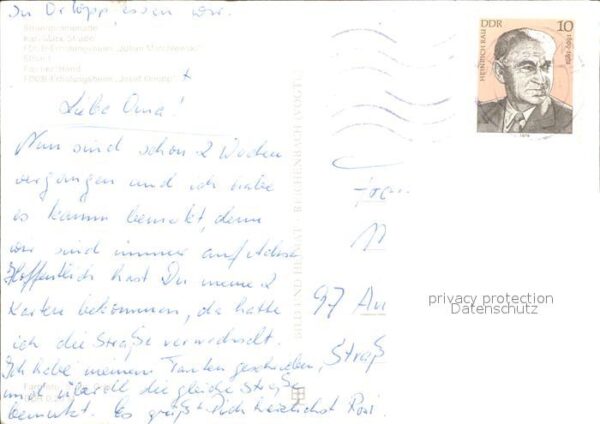 In essen wir.
Strandpromenade
Karl-Marx-Straße
FDGB-Erholungsheim „Julian Marchlewski“
Strand
FDGB-Erholungsheim
Liebe Oma!
Nun sind schon 2 Wochen
vergangen und ich habe
es kaum bemerkt, denn
wir sind immer auf Achse
Hoffentlich hast Du meine 2
Karten bekommen, da hatte
ich die Straße verwechselt.
Ich habe meinem Tanten geschrieben,
und überall die gleiche Straße
benutzt. Es grüßt Dich herzlichst Rosi.
BILD UND HEIMAT REICHENBACH (VOGTL)
DDR 10
HEINRICH RAU
1899-1961
Frau
97 Au
Straß
privacy protection
Datenschutz